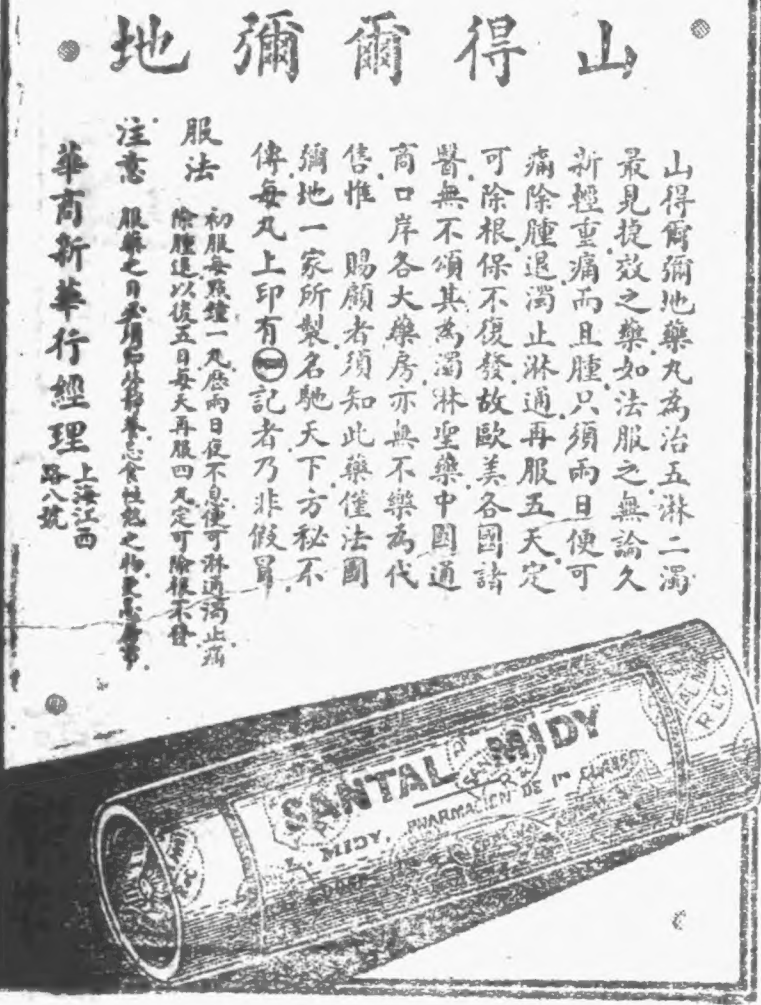 山得爾彌地
山得爾彌地藥丸為治五淋二濁
最見捷效之藥如法服之無論久
新輕重痛而且腫只須兩日便可
痛除腫退濁止淋通再服五天定
可除根保不復發故歐美各國諸
醫無不頌其為濁淋聖藥中國通
商口岸各大藥房亦無不樂為代
售惟 賜顧者須知此藥僅法國
彌地一家所製名馳天下方秘不
傳每丸上印有 記者乃非假冒
服法
初服每點鐘一丸歷兩日夜不息便可淋通濁止痛
除腫退以後五日每天再服四丸定可除根不發
注意
服藥之日必須 養忌食性熱之物更忌房事
華商新華行經理
上海江西
路八號
SANTAL MIDY
L. MIDY, PHARMACIEN DE 1re CLASSE